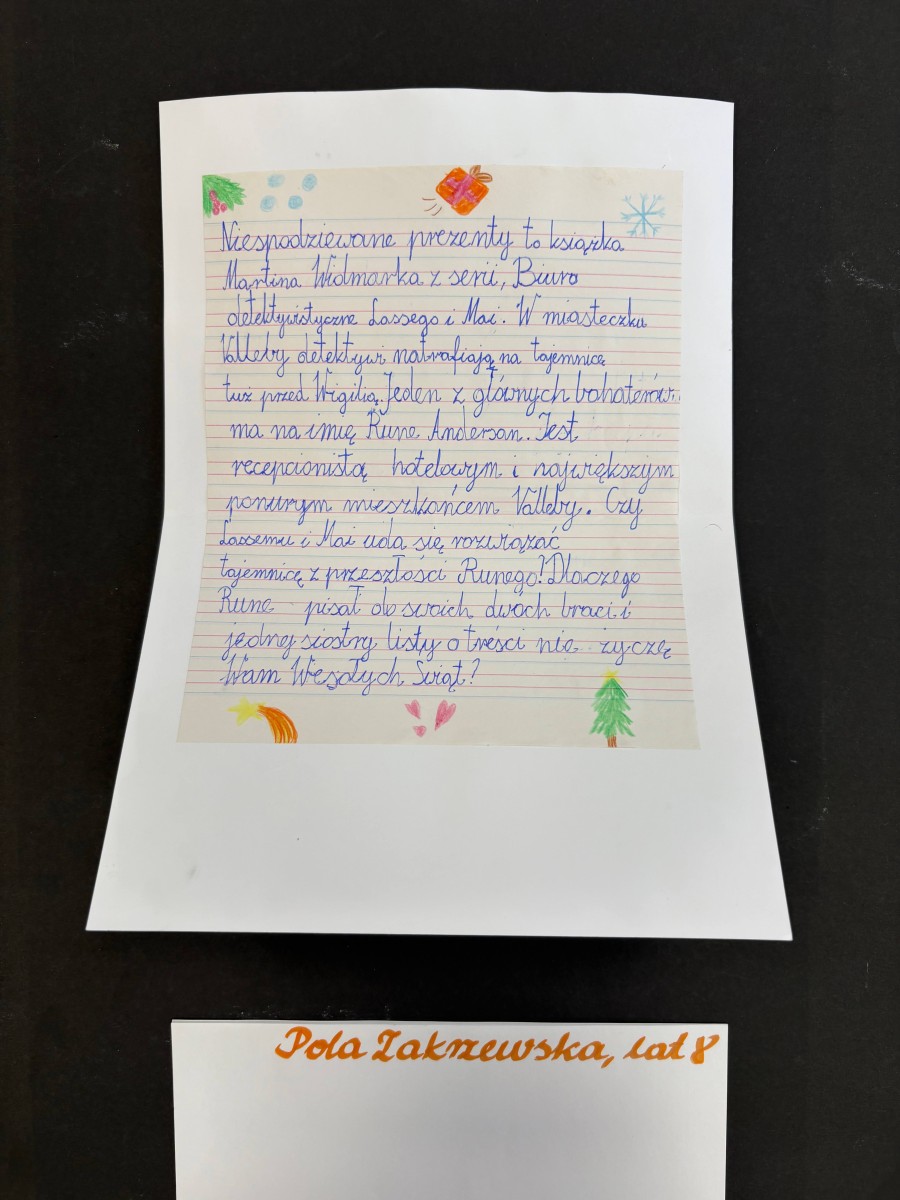 Niespodziewane prezenty to książka
Martina Widmarka z serii, Biuro
detektywistyczne Lassego i Mai. W miasteczku
Valleby detektywi natrafiają na tajemnicę
tuż przed Wigilią. Jeden z głównych bohaterów
ma na imię Rune Anderson. Jest
recepcionistą hotelowym i największym
ponurym mieszkańcem Valleby. Czy
Lassemu i Mai uda się rozwiązać
tajemnicę z przeszłości Runego? Dlaczego
Rune pisał do swoich dwóch braci i
jednej siostry listy o treści nie życzę
Wam Wesołych Świąt?
Pola Zakrzewska, lat 8